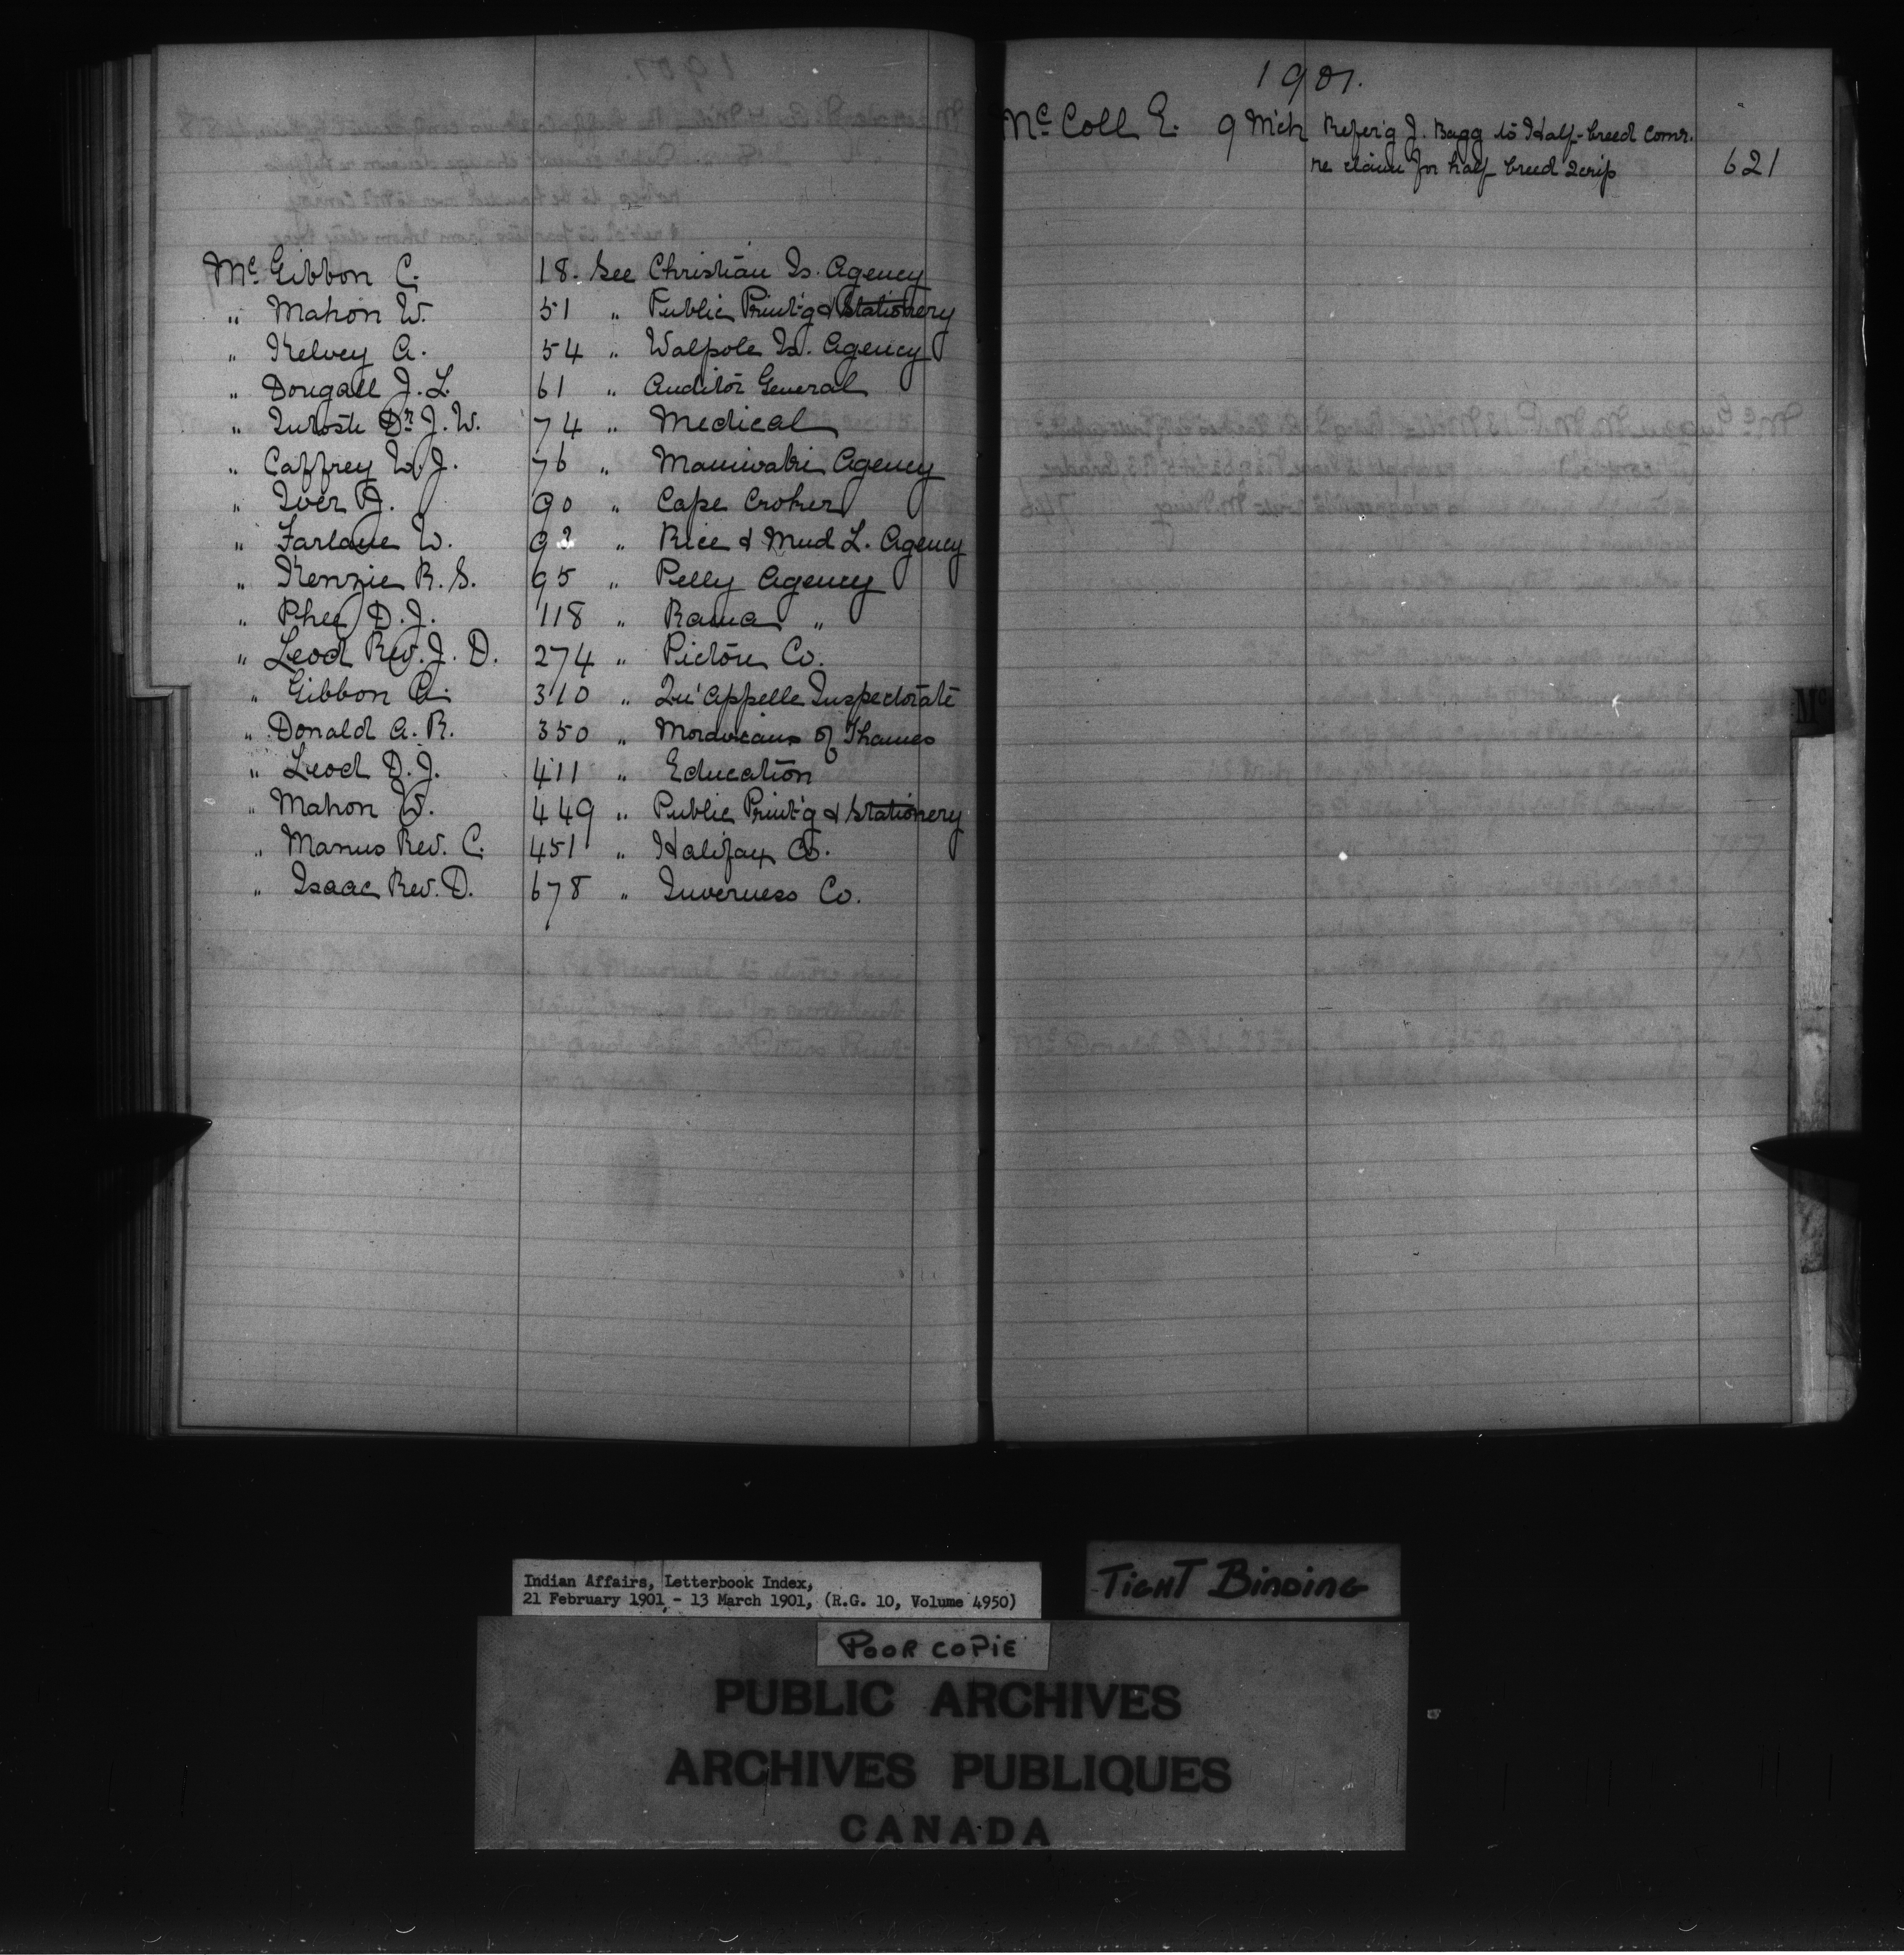 Mc Gibbon C. 18. See Christian Is. Agency
„ Mahon W. 51 „ Public Print'g & Stationery
„ Kelvey A. 54 „ Walpole Is. Agency
„ Dougall J. L. 61 „ Auditor General
„ Intosh Dr. J. W. 74 „ Medical
„ Caffrey W. J. 76 „ Maniwaki Agency
„ Iver A. 90 „ Cape Croker
„ Farlane W. 92 „ Rice & Mud L. Agency
„ Kenzie R. S. 95 „ Pelly Agency
„ Phee D. J. 118 „ Rama „
„ Leod Rev. J. D. 274 „ Pictou Co.
„ Gibbon A. 310 „ Qu'Appelle Inspectorate
„ Donald A. R. 350 „ Moravians of Thames
„ Leod D. J. 411 „ Education
„ Mahon W. 449 „ Public Print'g & Stationery
„ Manus Rev. C. 451 „ Halifax Co.
„ Isaac Rev. D. 678 „ Inverness Co.
1901.
Mc Coll E. 9 Mch Refer'g J. Bagg to Half-breed Comr.
re claim for half breed Scrip 621
Mc
Indian Affairs, Letterbook Index,
21 February 1901 - 13 March 1901, (R.G. 10, Volume 4950)
TIGHT BINDING
POOR COPIE
PUBLIC ARCHIVES
ARCHIVES PUBLIQUES
CANADA